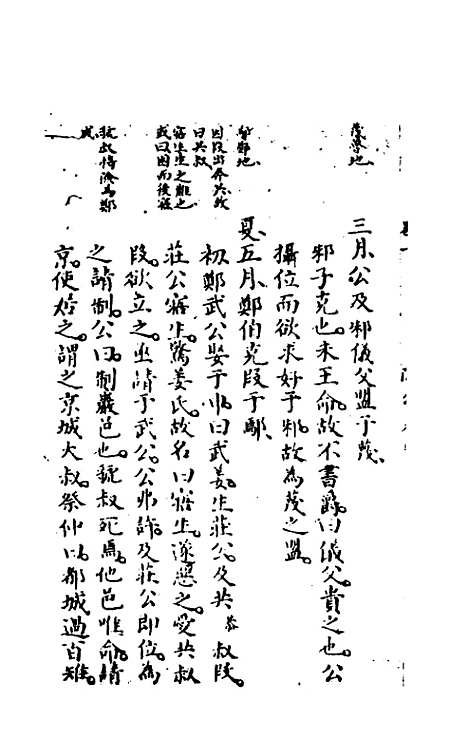 蔑魯地
三月公及邾儀父盟于蔑
邾子克也未王命故不書爵曰儀父貴之也公
攝位而欲求好于邾故為蔑之盟
鄢鄭地
夏五月鄭伯克段于鄢
因段出奔共故
曰共叔
初鄭武公娶于申曰武姜生莊公及共叔段
寤生生之難也
或曰因而後寤
莊公寤生驚姜氏故名曰寤生遂惡之愛共叔
段欲立之亟請于武公公弗許及莊公即位為
之請制公曰制巖邑也虢叔死焉他邑唯命請
京使居之謂之京城大叔祭仲曰都城過百雉